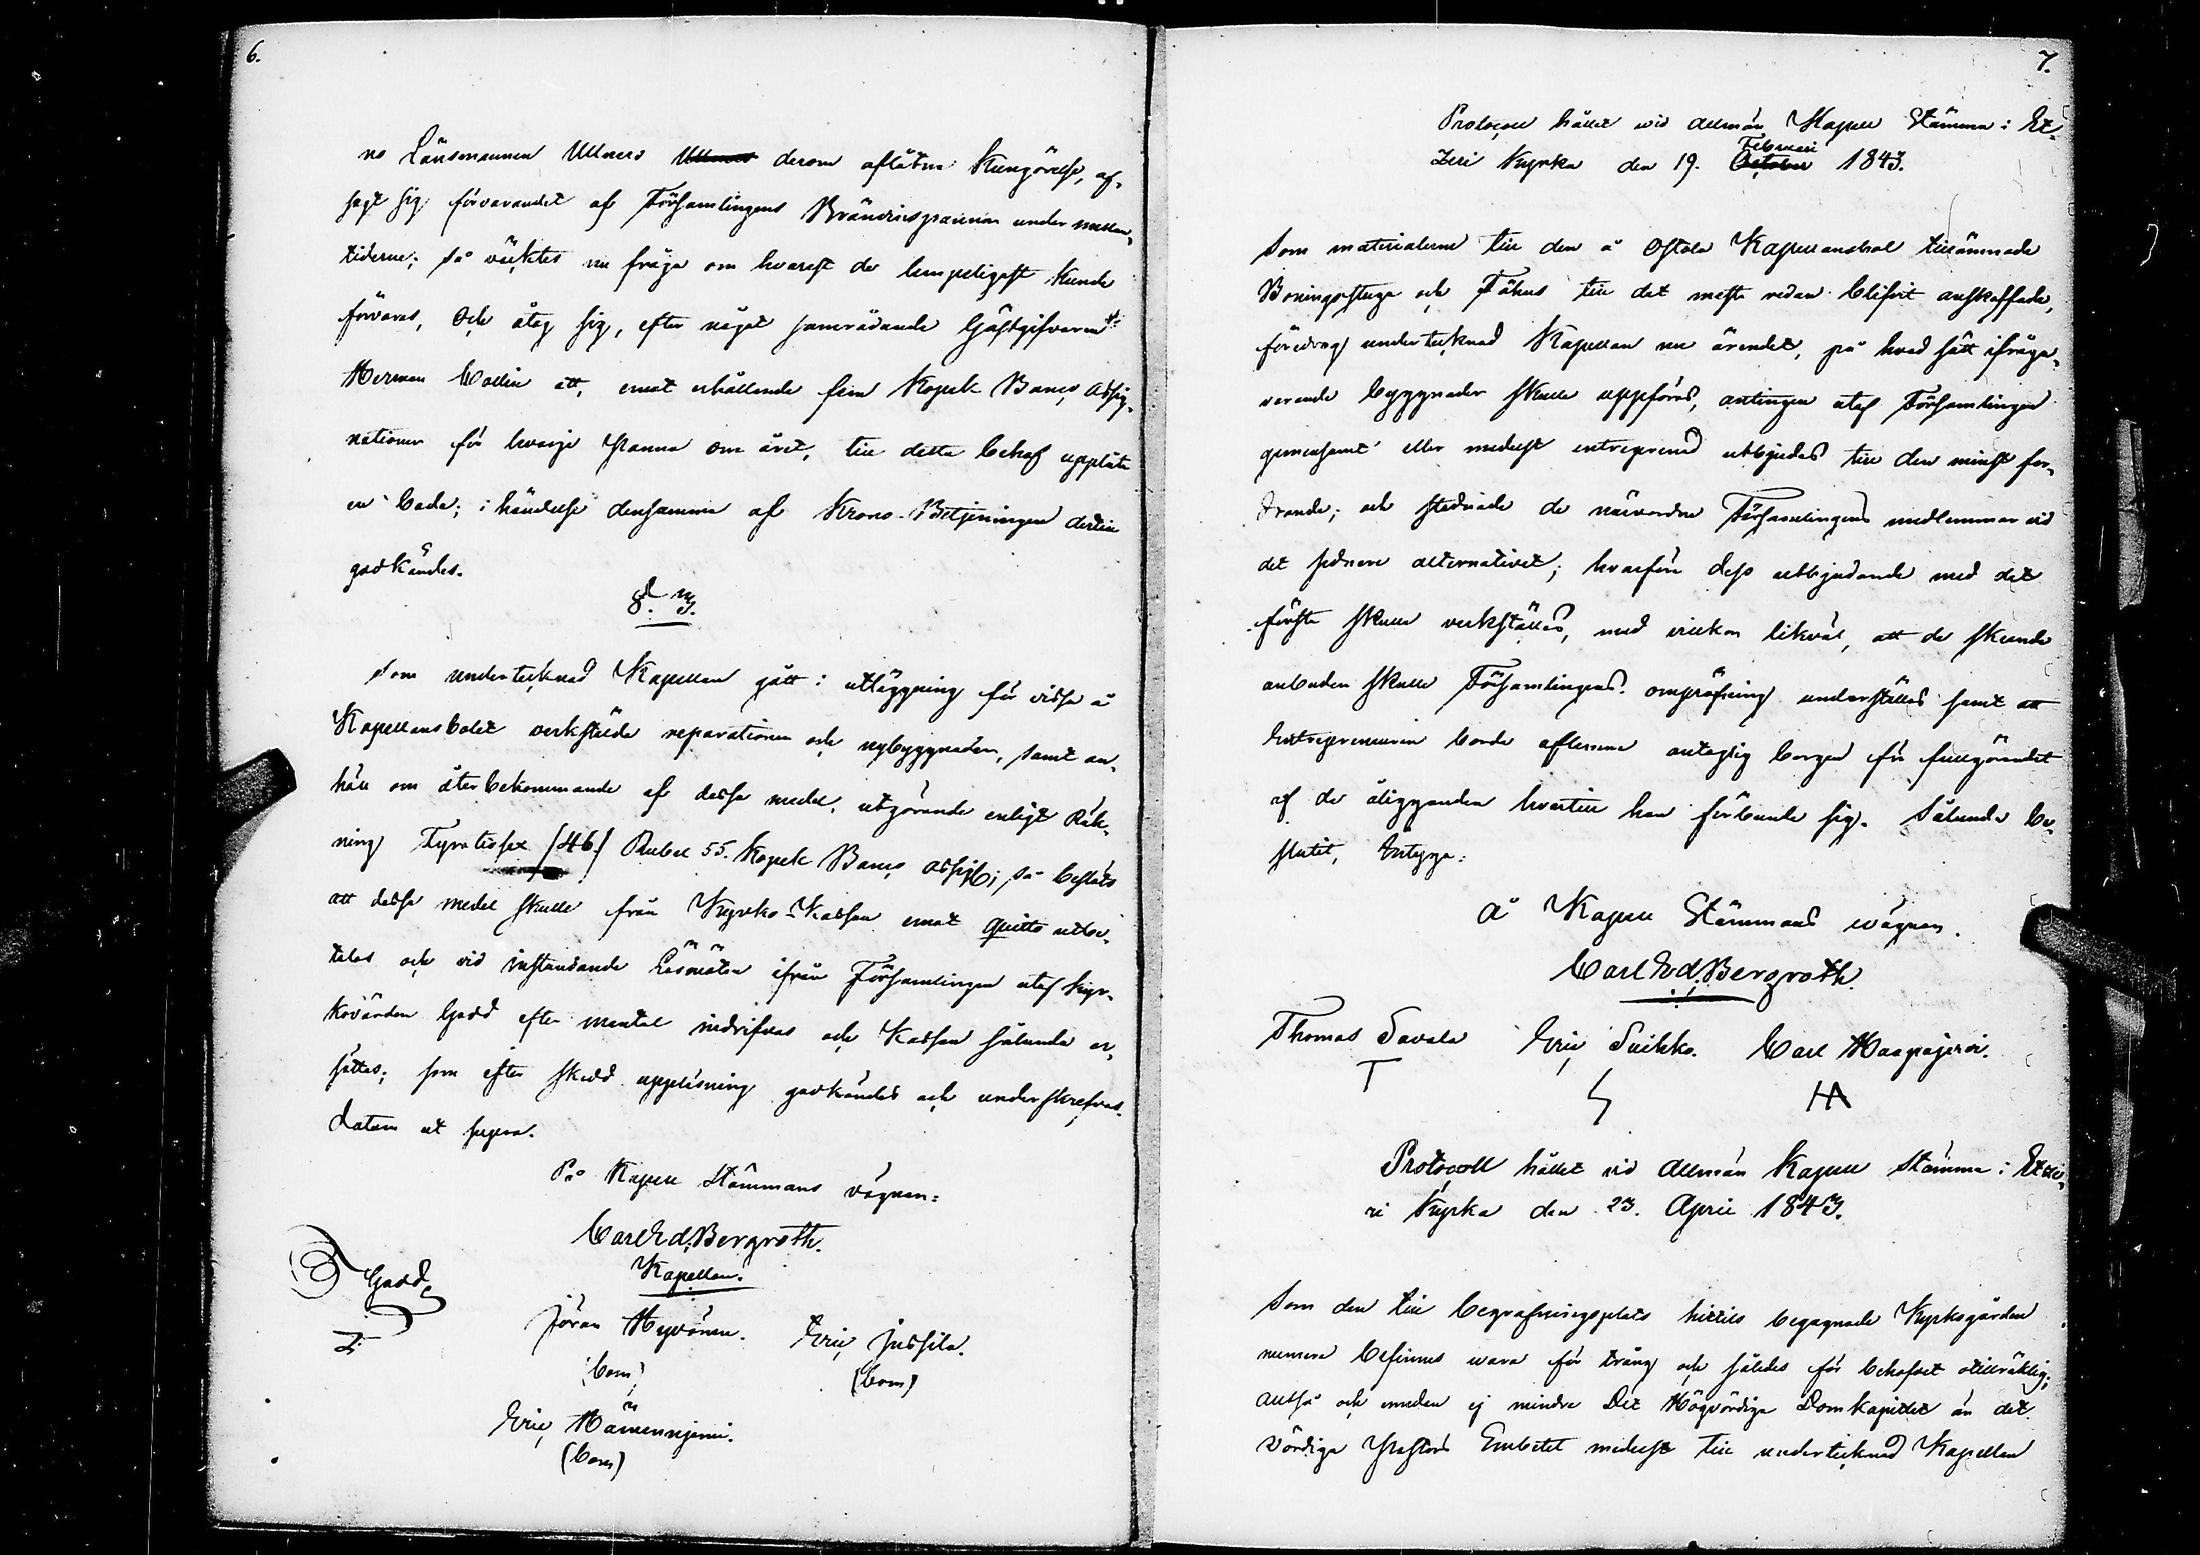 6.
no Länsmannen Ullners Ullners derom aflåtna Kungörelse, af-
sagt sig förvarandet af Församlingens Brännvinspannor under mellan-
tiderne; så väcktes nu fråga om hvarest de lempeligast kunde
förvaras, Och åtog sig, efter något samrådande Gästgifvaren
Herman Collin att, emot erhållande fem Kopek Banco Assig-
nationer för hvarje Panna om året, till detta behof upplåta
en bode; i händelse densamma af Krono-Betjeningen dertill
godkändes.
§. 3.
Som undertecknad Kapellan gått i utläggning för vissa å
Kapellansbolet verkstälda reparationer och nybyggnader, samt an-
höll om återbekommande af dessa medel, utgörande enligt Räk-
ning Fyratiosex [46] Rubel 55. Kopek Banco Assigt; så beslöts
att dessa medel skulle från Kyrko-Kassan emot quitto utbe-
talas och vid instundande Läsmöten ifrån Församlingen utaf Kyr-
kovärden Gadd efter mantal indrifvas och Kassan sålunda er-
sättas; som efter skedd uppläsning godkändes och underskrefvos.
Datum ut supra.
På Kapell Stämmans vägnar:
Carl Ed. Bergroth.
Kapellan.
Gadd
Jöran Hyvönen. Eric Jussila.
(bom) (bom)
Eric Hämeenniemi.
(bom)
7.
Protocoll hållet wid allmän Kapell Stämma i Et-
Februari
zeri Kyrka den 19. October 1843.
Som materialerne till den å Ostola Kapellansbol tillämnade
Boningsstuga och Fähus till det mesta redan blifvit anskaffade,
föredrog undertecknad Kapellan nu ärendet, på hvad sätt ifråga-
varande byggnader skulle uppföras, antingen utaf Församlingen
gemensamt eller medelst entreprenad utbjudas till den minst for-
drande; och stadnade de närvordne Församlingens medlemmar vid
det sednare alternativet; hvarföre dess utbjudande med det
första skulle verkställas, med vilkor likväl, att de skeende
anbuden skulle Församlingens ompröfning underställas samt att
Entrepreneuren borde aflemna antaglig borgen för fullgörandet
af de åligganden hvartill han förbunde sig. Sålunda be-
slutit, Intyga:
Å Kapell Stämmans wägnar.
Carl Ed. Bergroth.
Thomas Savola Eric Suikko. Carl Haapajärvi.
T HA
Protocoll hållet vid Allmän Kapell Stämma i Etze-
ri Kyrka den 23. April 1843.
Som den till begrafningsplats hittils begagnade Kyrkogården
numera befinnes wara för trång och således för behofvet otillräklig;
altså och emedan ej mindre Det Högvördiga Domkapitlet än det
Vördiga Pastors Embetet medelst till undertecknad Kapellan